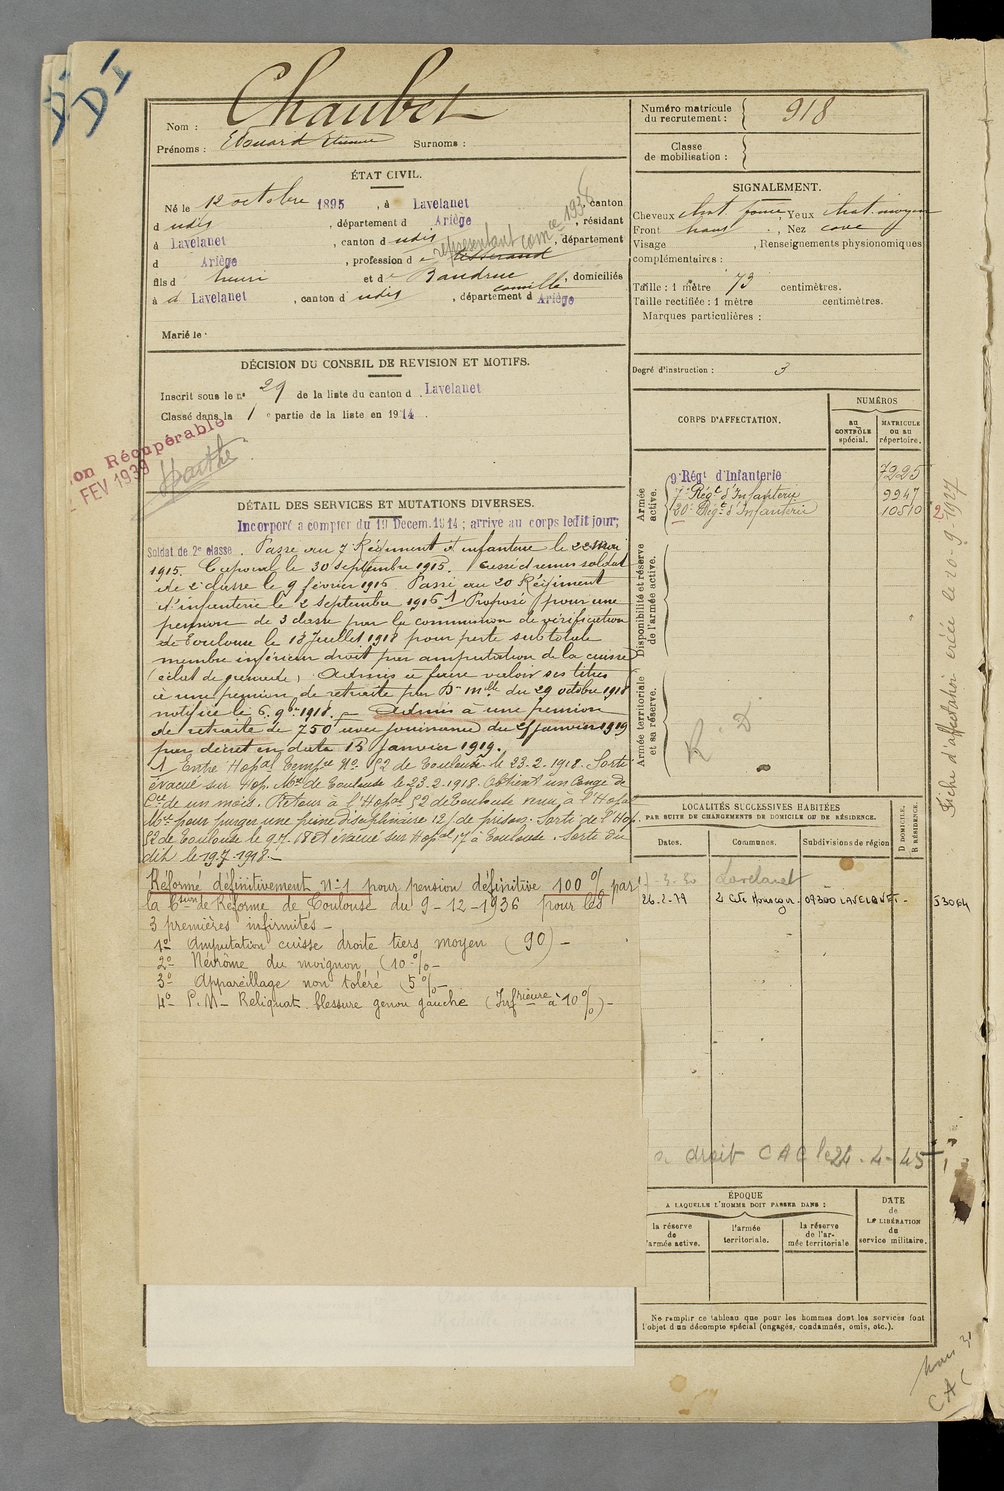 DI
DI
Chaubet
Nom :
Prénoms : Edouard Etienne Surnoms :
Numéro matricule du recrutement : 918
Classe de mobilisation :
ÉTAT CIVIL.
Né le 12 octobre 1895, à Lavelanet, canton
d udis, département d Ariège, résidant
à Lavelanet, canton d udis, département
d Ariège, profession de tisserand représentant com ce 1936
fils d henri et de Baudruc Camille, domiciliés
à d Lavelanet, canton d udis, département d Ariège
Marié le
SIGNALEMENT.
Cheveux chat foncé Yeux chat. moyen
Front haut, Nez cave
Visage , Renseignements physionomiques
complémentaires :
Taille : 1 mètre 73 centimètres.
Taille rectifiée : 1 mètre centimètres.
Marques particulières :
Degré d'instruction : 3
DÉCISION DU CONSEIL DE REVISION ET MOTIFS.
Inscrit sous le n° 29 de la liste du canton d Lavelanet
Classé dans la 1 e partie de la liste en 1914.
on Récupérable
FEV 1939
CORPS D'AFFECTATION.
NUMÉROS
au CONTRÔLE spécial.
MATRICULE ou au répertoire.
Armée active.
9e Régt d'Infanterie 7225
7e Régt d'Infanterie 9947
20e Régt d'Infanterie 10510
Disponibilité et réserve de l'armée active.
Armée territoriale et sa réserve.
R. D
Fiche d'affectation créée le 20-9-1927
DÉTAIL DES SERVICES ET MUTATIONS DIVERSES.
Incorporé a compter du 19 Decem. 1914 ; arrive au corps ledit jour;
Soldat de 2e classe. Passé au 7e Régiment d'infanterie le 22 mai
1915. Caporal le 30 septembre 1915. Cassé et remis soldat
de 2e classe le 9 février 1916 Passé au 20 Régiment
d'infanterie le 2 septembre 1916 1 Proposé pour une
pension de 3 classe par la commission de vérification
de Toulouse le 18 Juillet 1918 pour perte subtotale
membre inférieur droit par amputation de la cuisse
(éclat de grenade) Admis à faire valoir ses titres
à une pension de retraite par Dn mlle du 29 octobre 1918
notifiée le 6. 9bre 1918. Admis à une pension
de retraite de 750 avec jouissance du 21 janvier 1919
par décret en date 15 janvier 1919.
1 Entré Hopal Tempre No 52 de Toulouse le 23.2.1918. Sorti
évacué sur Hop. Mre de Toulouse le 23.2.1918. Obtient un Congé de
Cce de un mois. Retour à l'Hopal 52 de Toulouse venu, à l'Hopal
Mre pour purger une peine disciplinaire 12 j de prison. Sorti de l'Hop.
52 de Toulouse le 9.7.18 et évacué sur Hopal 17 à Toulouse. Sorti du
dit le 19.7.1918.
Réformé définitivement N°1 pour pension définitive 100 % par
la Csion de Réforme de Toulouse du 9-12-1936 pour les
3 premières infirmités -
1° Amputation cuisse droite tiers moyen (90) -
2° Névrôme du moignon (10 % -
3° Appareillage non toléré (5 % -
4° P.M - Reliquat blessure genou gauche (Inférieure à 10 %) -
LOCALITÉS SUCCESSIVES HABITÉES
PAR SUITE DE CHANGEMENTS DE DOMICILE OU DE RÉSIDENCE.
D DOMICILE.
R RÉSIDENCE.
Dates. Communes. Subdivisions de région
7-3-30 Lavelanet
26.2.79 09300 LAVELANET
a droit CAC le 24-4-45
ÉPOQUE
A LAQUELLE L'HOMME DOIT PASSER DANS :
la réserve de l'armée active.
l'armée territoriale.
la réserve de l'armée territoriale
DATE de LA LIBÉRATION du service militaire.
Ne remplir ce tableau que pour les hommes dont les services font
l'objet d'un décompte spécial (engagés, condamnés, omis, etc.).
CAC